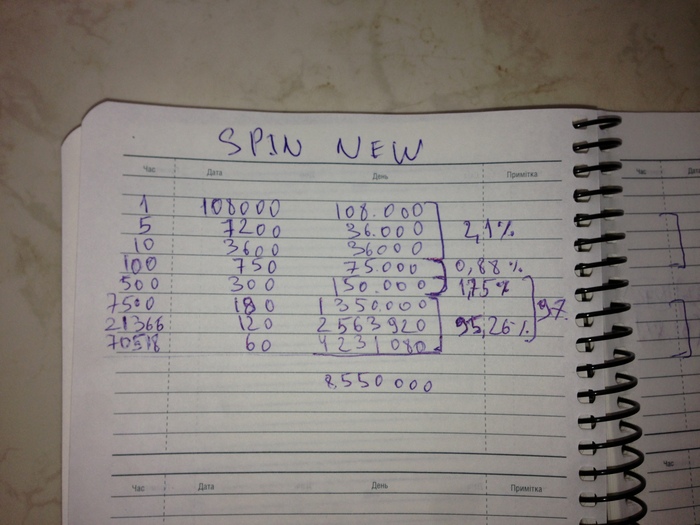 SPIN NEW
Час Дата День Примітка
1 108000 108.000
5 7200 36.000 2,1%
10 3600 36000
100 750 75.000 0,88%
500 300 150.000 1,75%
7500 180 1350.000
21366 120 2563920 95,26%
70518 60 4231080
97%
8550000
Час Дата День Примітка
Час Дата
Час